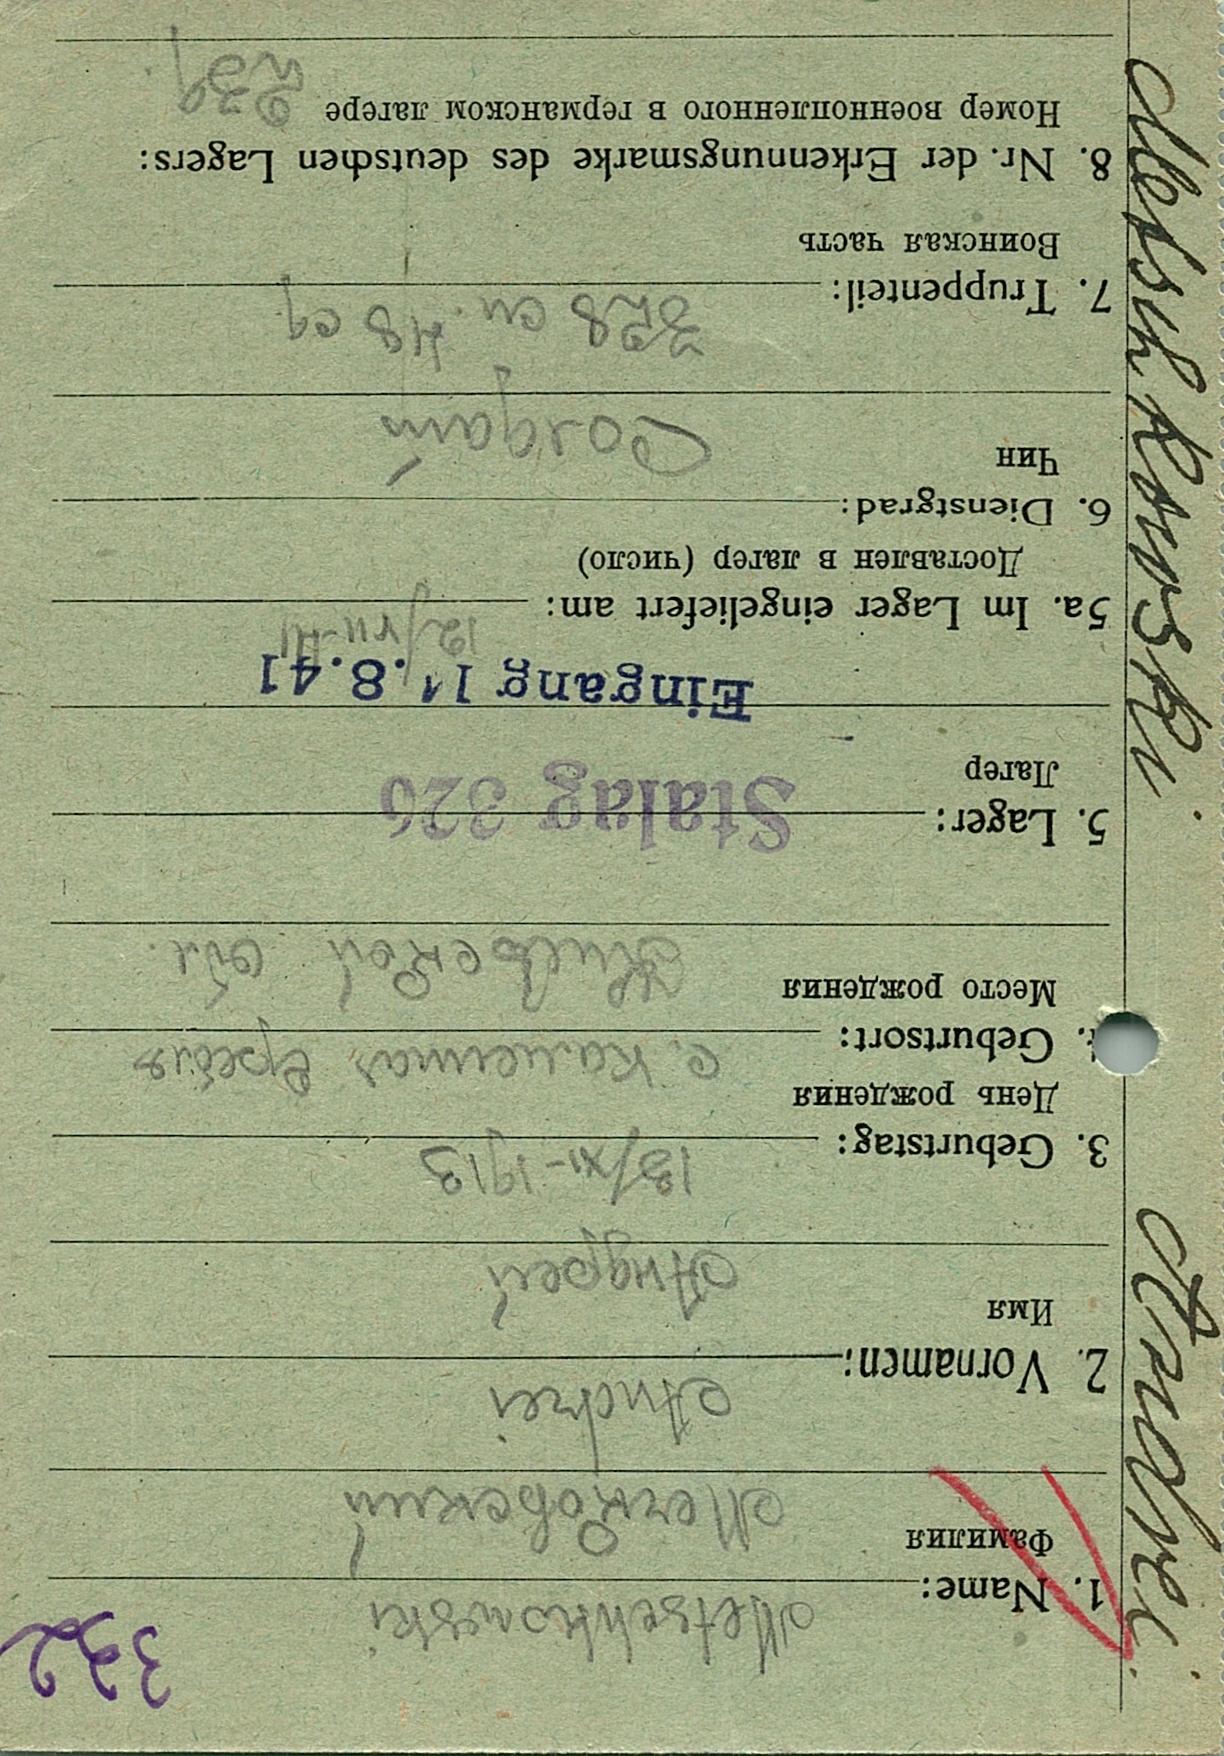 332
1. Name: Metschkowski
Фамилия Мечковский
Andrei
2. Vornamen:
Имя Андрей
3. Geburtstag: 13/XI-1913
День рождения
4. Geburtsort: с.
Место рождения Киевской обл.
5. Lager: Stalag 326
Лагер
Eingang 11.8.41
5a. Im Lager eingeliefert am: 12/VII-41
Доставлен в лагер (число)
6. Dienstgrad:
Чин Солдат
7. Truppenteil: 328 сп. 48 сд
Воинская часть
8. Nr. der Erkennungsmarke des deutschen Lagers:
Номер военнопленного в германском лагере
Metschkowski Andrei.